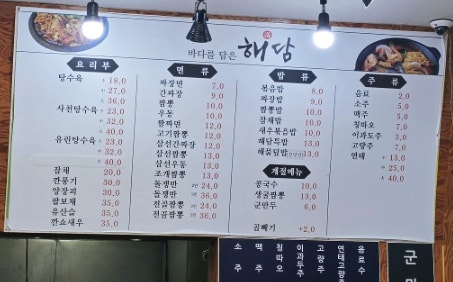 바다를 담은 해담
요리부
탕수육 小 18,0
中 27,0
大 36,0
사천탕수육 小 23,0
中 32,0
大 40,0
유린탕수육 小 23,0
中 32,0
大 40,0
잡채 20,0
깐풍기 30,0
양장피 30,0
팔보채 35,0
유산슬 35,0
깐쇼새우 35,0
면류
짜장면 7,0
간짜장 9,0
짬뽕 10,0
우동 10,0
짬짜면 12,0
고기짬뽕 12,0
삼선간짜장 12,0
삼선짬뽕 13,0
삼선우동 13,0
조개짬뽕 13,0
돌쟁반 24,0
돌쟁반 36,0
전골짬뽕 24,0
전골짬뽕 36,0
밥류
볶음밥 8,0
짜장밥 9,0
짬뽕밥 10,0
잡채밥 10,0
새우볶음밥 10,0
해담특밥 13,0
해물덮밥 13,0
계절메뉴
콩국수 10,0
생굴짬뽕 13,0
군만두 6,0
곱빼기 +2,0
주류
음료 2,0
소주 5,0
맥주 5,0
칭따오 7,0
이과도주 5,0
고량주 7,0
연태 小 13,0
中 25,0
大 40,0
소주
맥주
칭따오
이과두주
고량주
연태고량주
음료수
군만